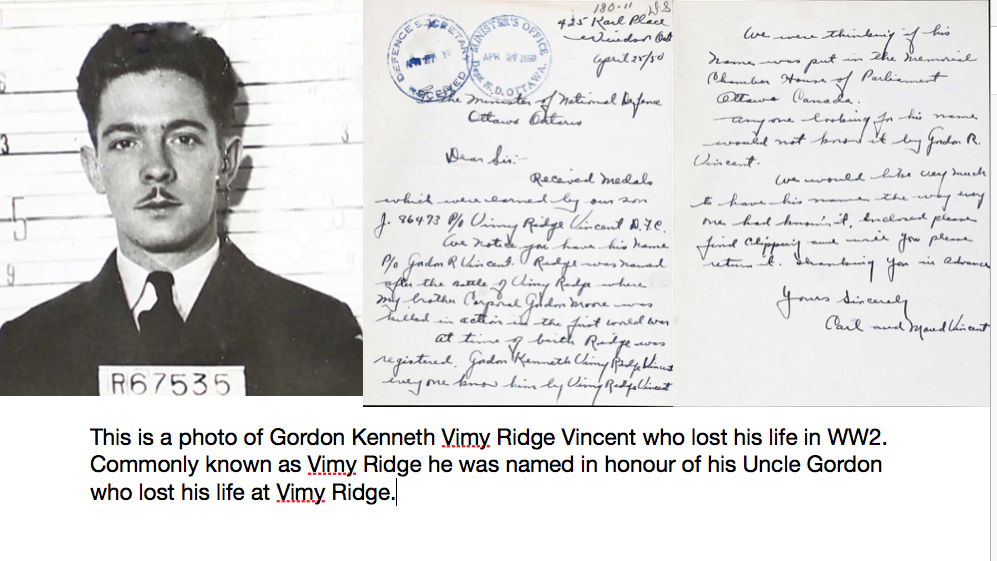 3
5
9
3
R67535
DEFENCE SECRETARY
RECEIVED
MINISTER'S OFFICE
APR 27 1950
N.D. OTTAWA.
180-11 D.S
425 Karl Place
Windsor Ont
April 25/50
To the Minister of National Defence
Ottawa Ontario
Dear Sir:-
Received Medals
which were earned by our son
J. 86473 P/O Vimy Ridge Vincent D.F.C.
We notice you have his name
P/O Gordon R Vincent. Ridge was named
after the battle of Vimy Ridge where
my brother Corporal Gordon Moore was
killed in action in the first world war
at time of birth Ridge was
registered. Gordon Kenneth Vimy Ridge Vincent
everyone know him by Vimy Ridge Vincent
We were thinking if his
name was put in the Memorial
Chamber House of Parliament
Ottawa Canada.
anyone looking for his name
would not know it by Gordon R.
Vincent.
We would like very much
to have his name the way every
one had know'n it. Enclosed please
find Clipping and will you please
return it. Thanking you in advance
Yours Sincerely
Carl and Maud Vincent
This is a photo of Gordon Kenneth Vimy Ridge Vincent who lost his life in WW2.
Commonly known as Vimy Ridge he was named in honour of his Uncle Gordon
who lost his life at Vimy Ridge.